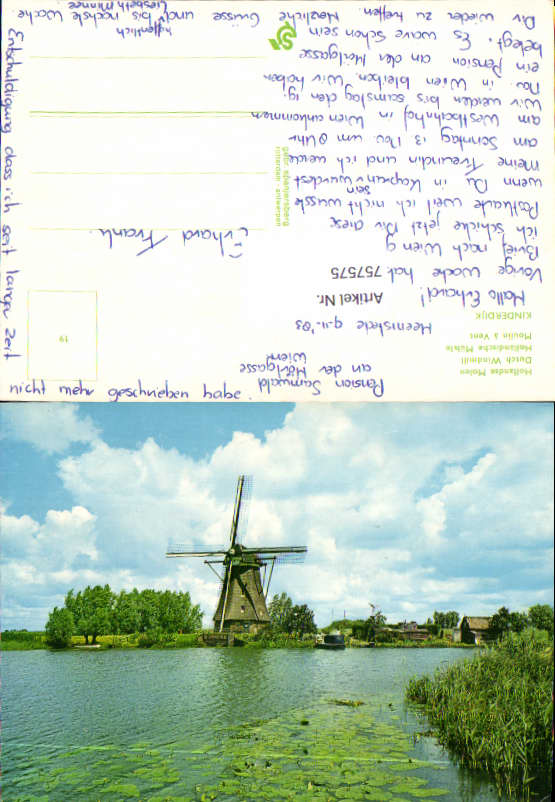 Hollandse Molen
Dutch Windmill
Holländische Mühle
Moulin à Vent
KINDERDIJK
Pension Samwald
an der Hörlgasse
Wien
Heemstede 9-11-'83
Artikel Nr.
757575
Hallo Erhard!
Vorige Woche hat
Brief nach Wien g
ich schicke jetzt Dir diese
Postkarte weil ich nicht wusste
wenn Du in Kaprun sein würdest
Meine Freundin und ich werde
am Sonntag 13 Nov. um 8 Uhr
am Westbahnhof in Wien ankommen
Wir werden bis samstag den 19
Nov. in Wien bleiben. Wir haben
ein Pension an der Hörlgasse
belegt. Es wäre schön sein
Dir wieder zu treffen. Herzliche Grüsse und bis nächste Woche
hoffentlich
Liesbeth Minnee
Entschuldigung dass ich seit langer Zeit
nicht mehr geschrieben habe
Erhard Frank
spanjersberg
rotterdam - antwerpen
19